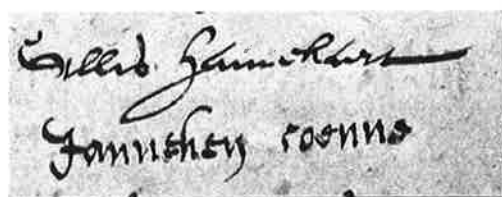 Gillis Hannekart
Janneken coenne